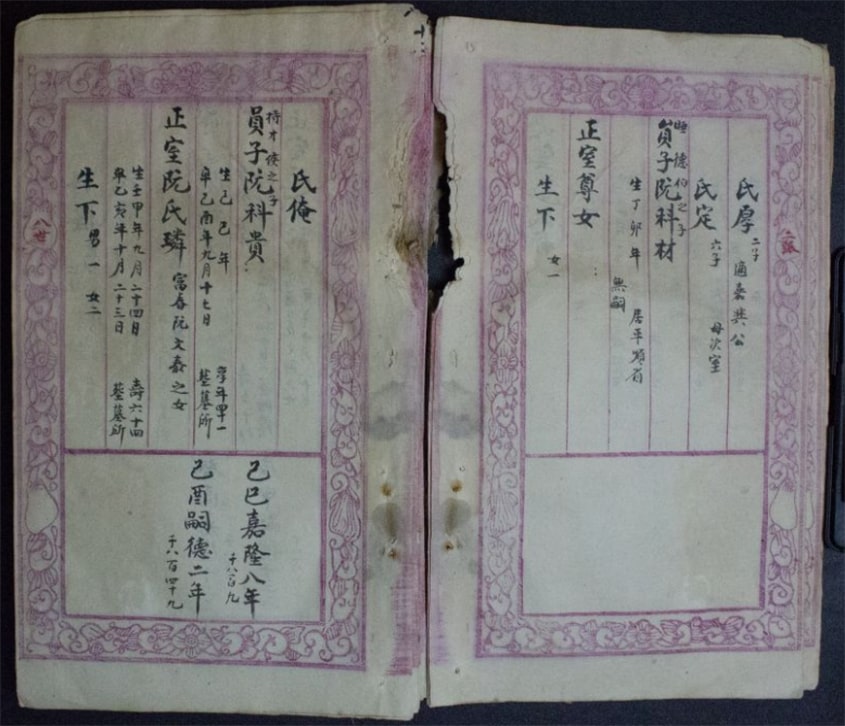 氏厚 二子 適嘉興公
氏定 六子 母次室
員子阮科材 睡德伯之子
生丁卯年 居平順省
無嗣
正室尊女
生下 女一
二派
氏俺
員子阮科貴 持才侯之子
生己巳年
卒己酉年九月十七日 享年四十一 墓墓所
正室阮氏璘 富春阮文嘉之女
生壬申年九月二十四日 壽六十四
卒乙亥年十月二十三日 墓墓所
生下 男一 女二
八世
己巳嘉隆八年
千八百九
己酉嗣德二年
千八百四十九